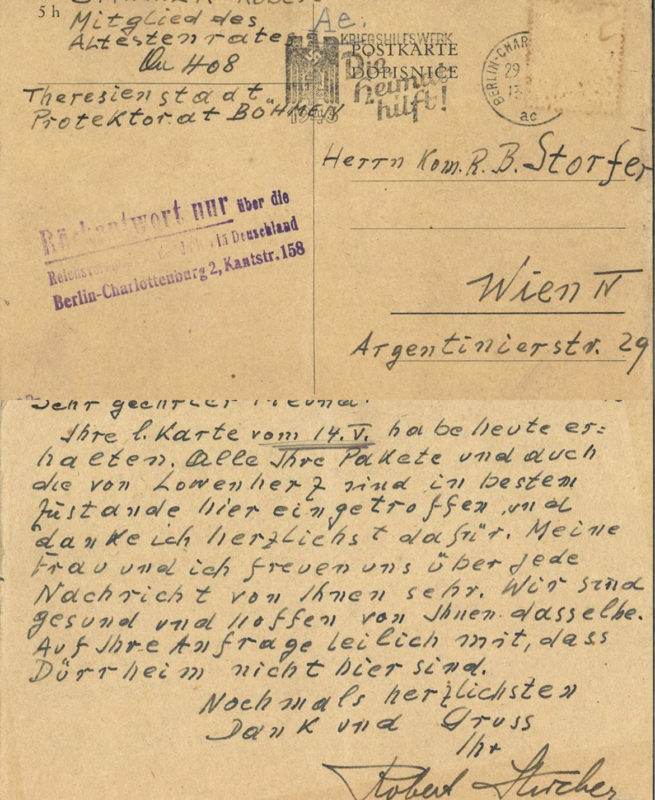 5 h
Mitglied des
Ältestenrates
Qu 408
Theresienstadt
Protektorat BÖHMEN
Ae.
KRIEGSHILFSWERK
POSTKARTE
DOPISNICE
Die
Heimat
hilft!
1943
BERLIN-CHAR
29
13
ac
Herrn Kom. R. B. Storfer
Wien IV
Argentinierstr. 29
Rückantwort nur über die
in Deutschland
Berlin-Charlottenburg 2, Kantstr. 158
Sehr geehrter Freund!
Ihre l. Karte vom 14. V. habe heute er=
halten. Alle Ihre Pakete und auch
die von Löwenherz sind in bestem
Zustande hier eingetroffen und
danke ich herzlichst dafür. Meine
Frau und ich freuen uns über jede
Nachricht von Ihnen sehr. Wir sind
gesund und hoffen von Ihnen dasselbe.
Auf Ihre Anfrage teilich mit, dass
Dürrheim nicht hier sind.
Nochmals herzlichsten
Dank und Gruss
Ihr
Robert Stricker